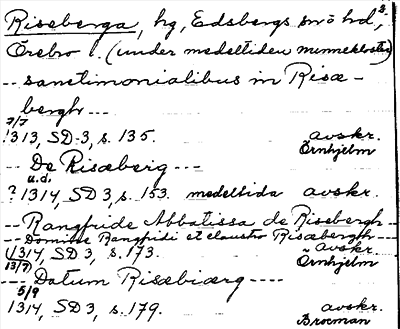 Riseberga, hg, Edsbergs sn o hd,
Örebro l. (under medeltiden nunnekloster)
-- sanctimonialibus in Risæ-
berghr ---
7/7
1313, SD 3, s. 135. avskr.
Örnhjelm
-- De Risæberg ---
u.d.
? 1314, SD 3, s. 153. medeltida avskr.
-- Rangfride Abbatissa de Risebergh --
-- Domine Rangfridi et claustro Risæbergh ---
1314, SD 3, s. 173. avskr.
13/7 Örnhjelm
--- Datum Risæbiærg ---
5/9
1314, SD 3, s. 179. avskr.
Brocman